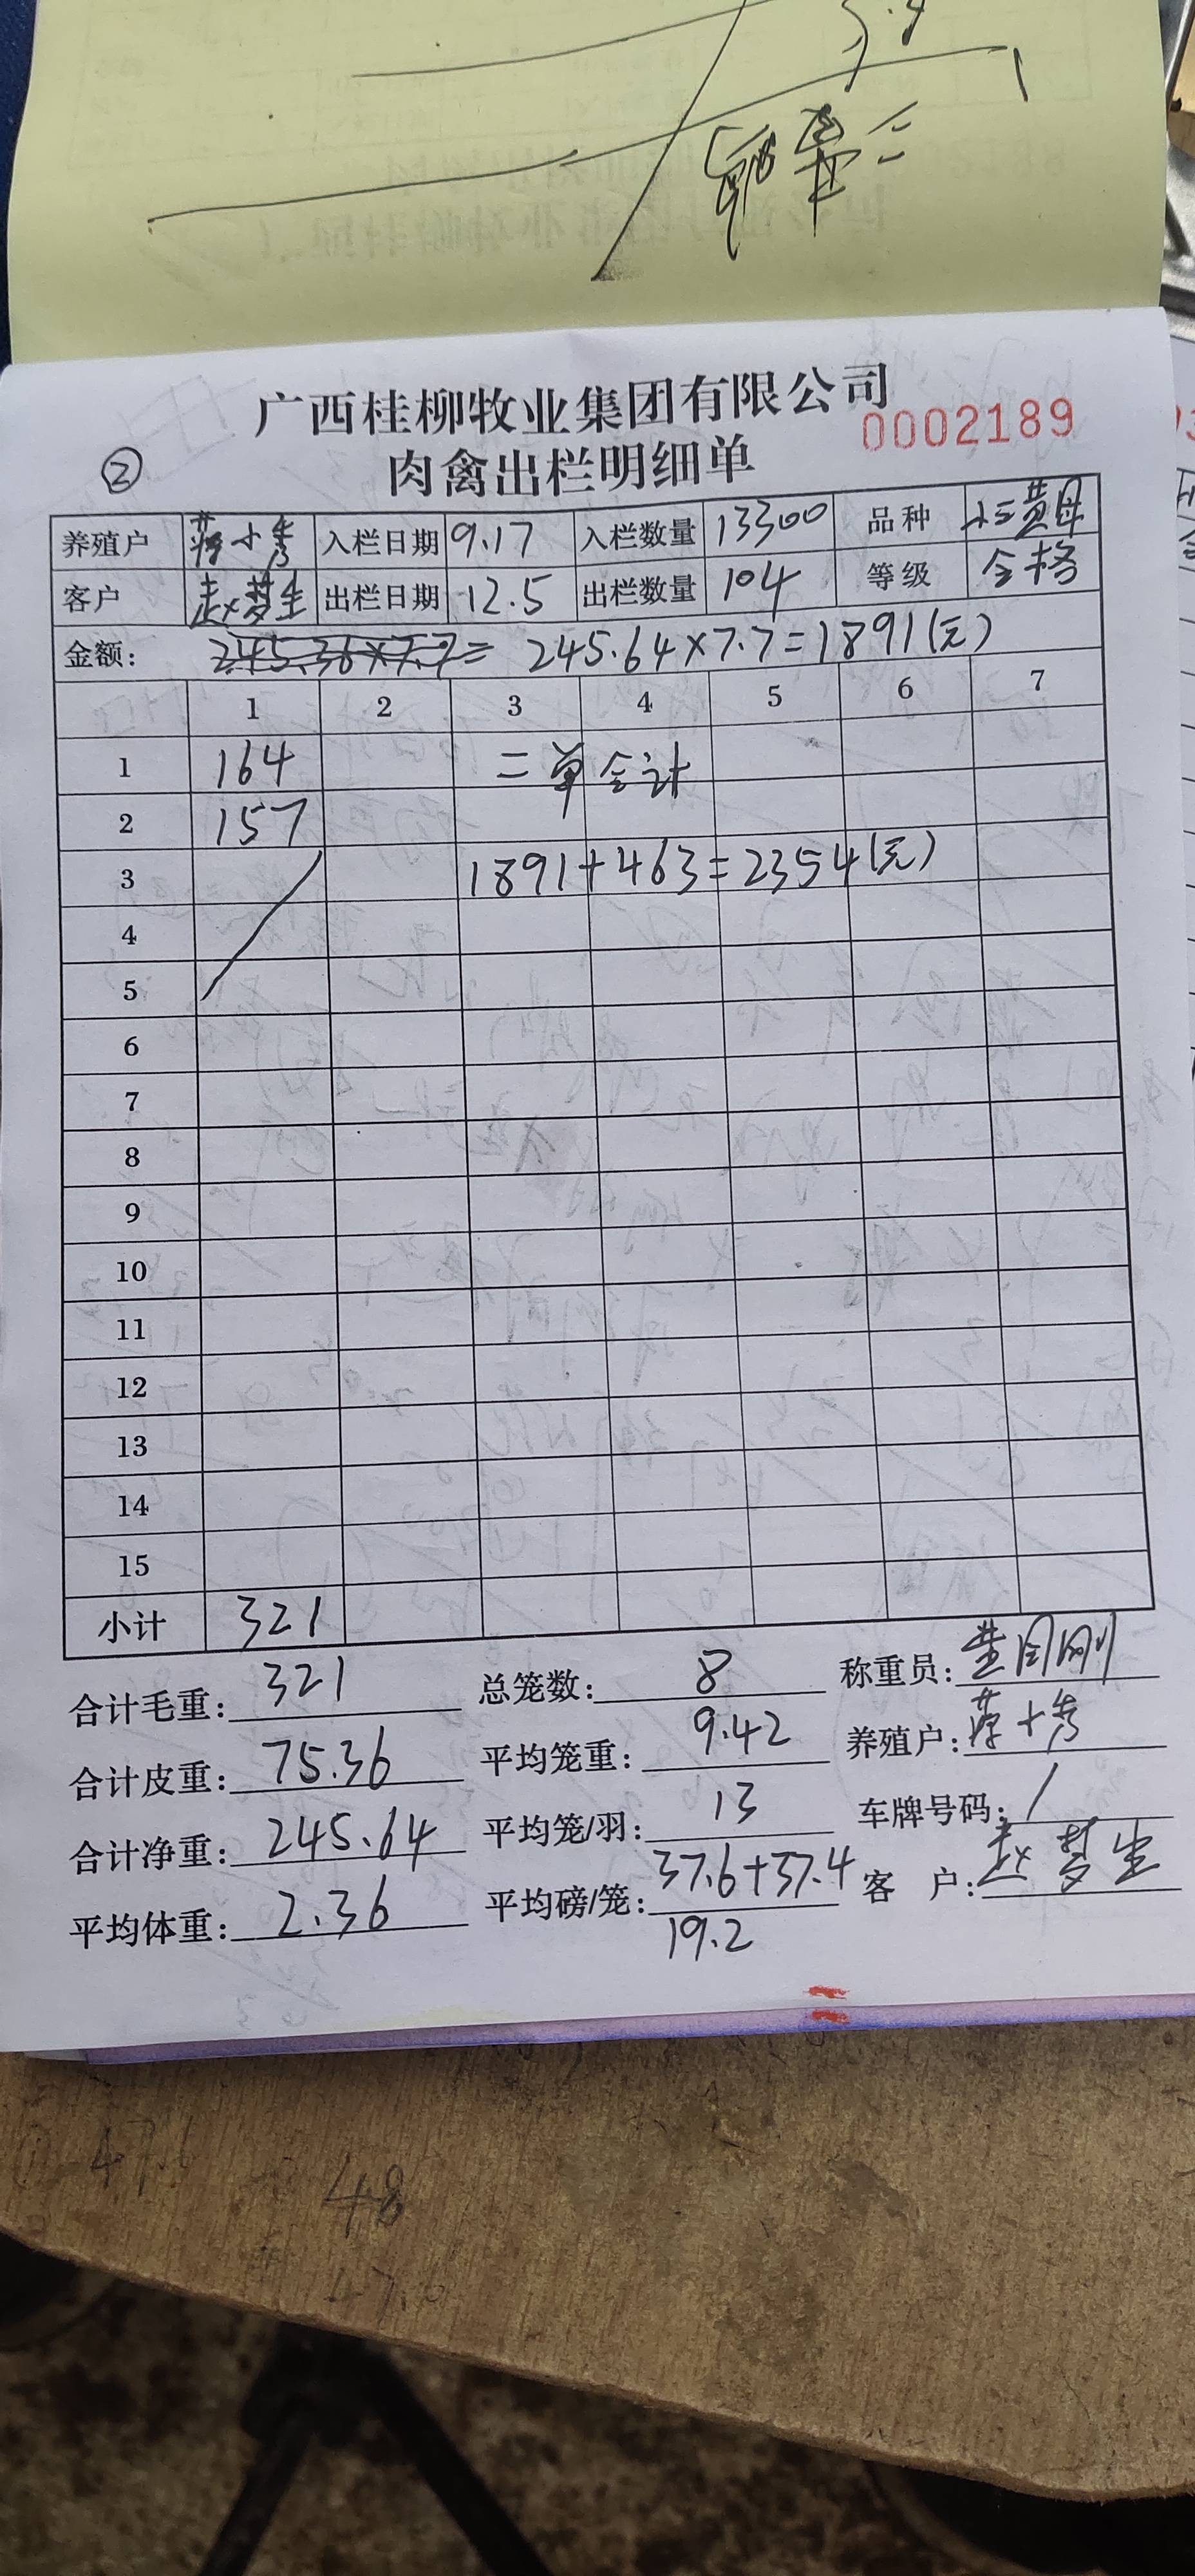 3.4
广西桂柳牧业集团有限公司
0002189
② 肉禽出栏明细单
养殖户 入栏日期 9.17 入栏数量 13300 品种 小三黄母
客户 赵梦生 出栏日期 12.5 出栏数量 104 等级 合格
金额: 245.36×7.7= 245.64×7.7=1891(元)
1 2 3 4 5 6 7
1 164 二单合计
2 157
3 1891+463=2354(元)
4
5
6
7
8
9
10
11
12
13
14
15
小计 321
合计毛重: 321 总笼数: 8 称重员:
合计皮重: 75.36 平均笼重: 9.42 养殖户:
合计净重: 245.64 平均笼/羽: 13 车牌号码: /
平均体重: 2.36 平均磅/笼: 37.6+37.4 客 户: 赵梦生
19.2
47.6
48
47.6